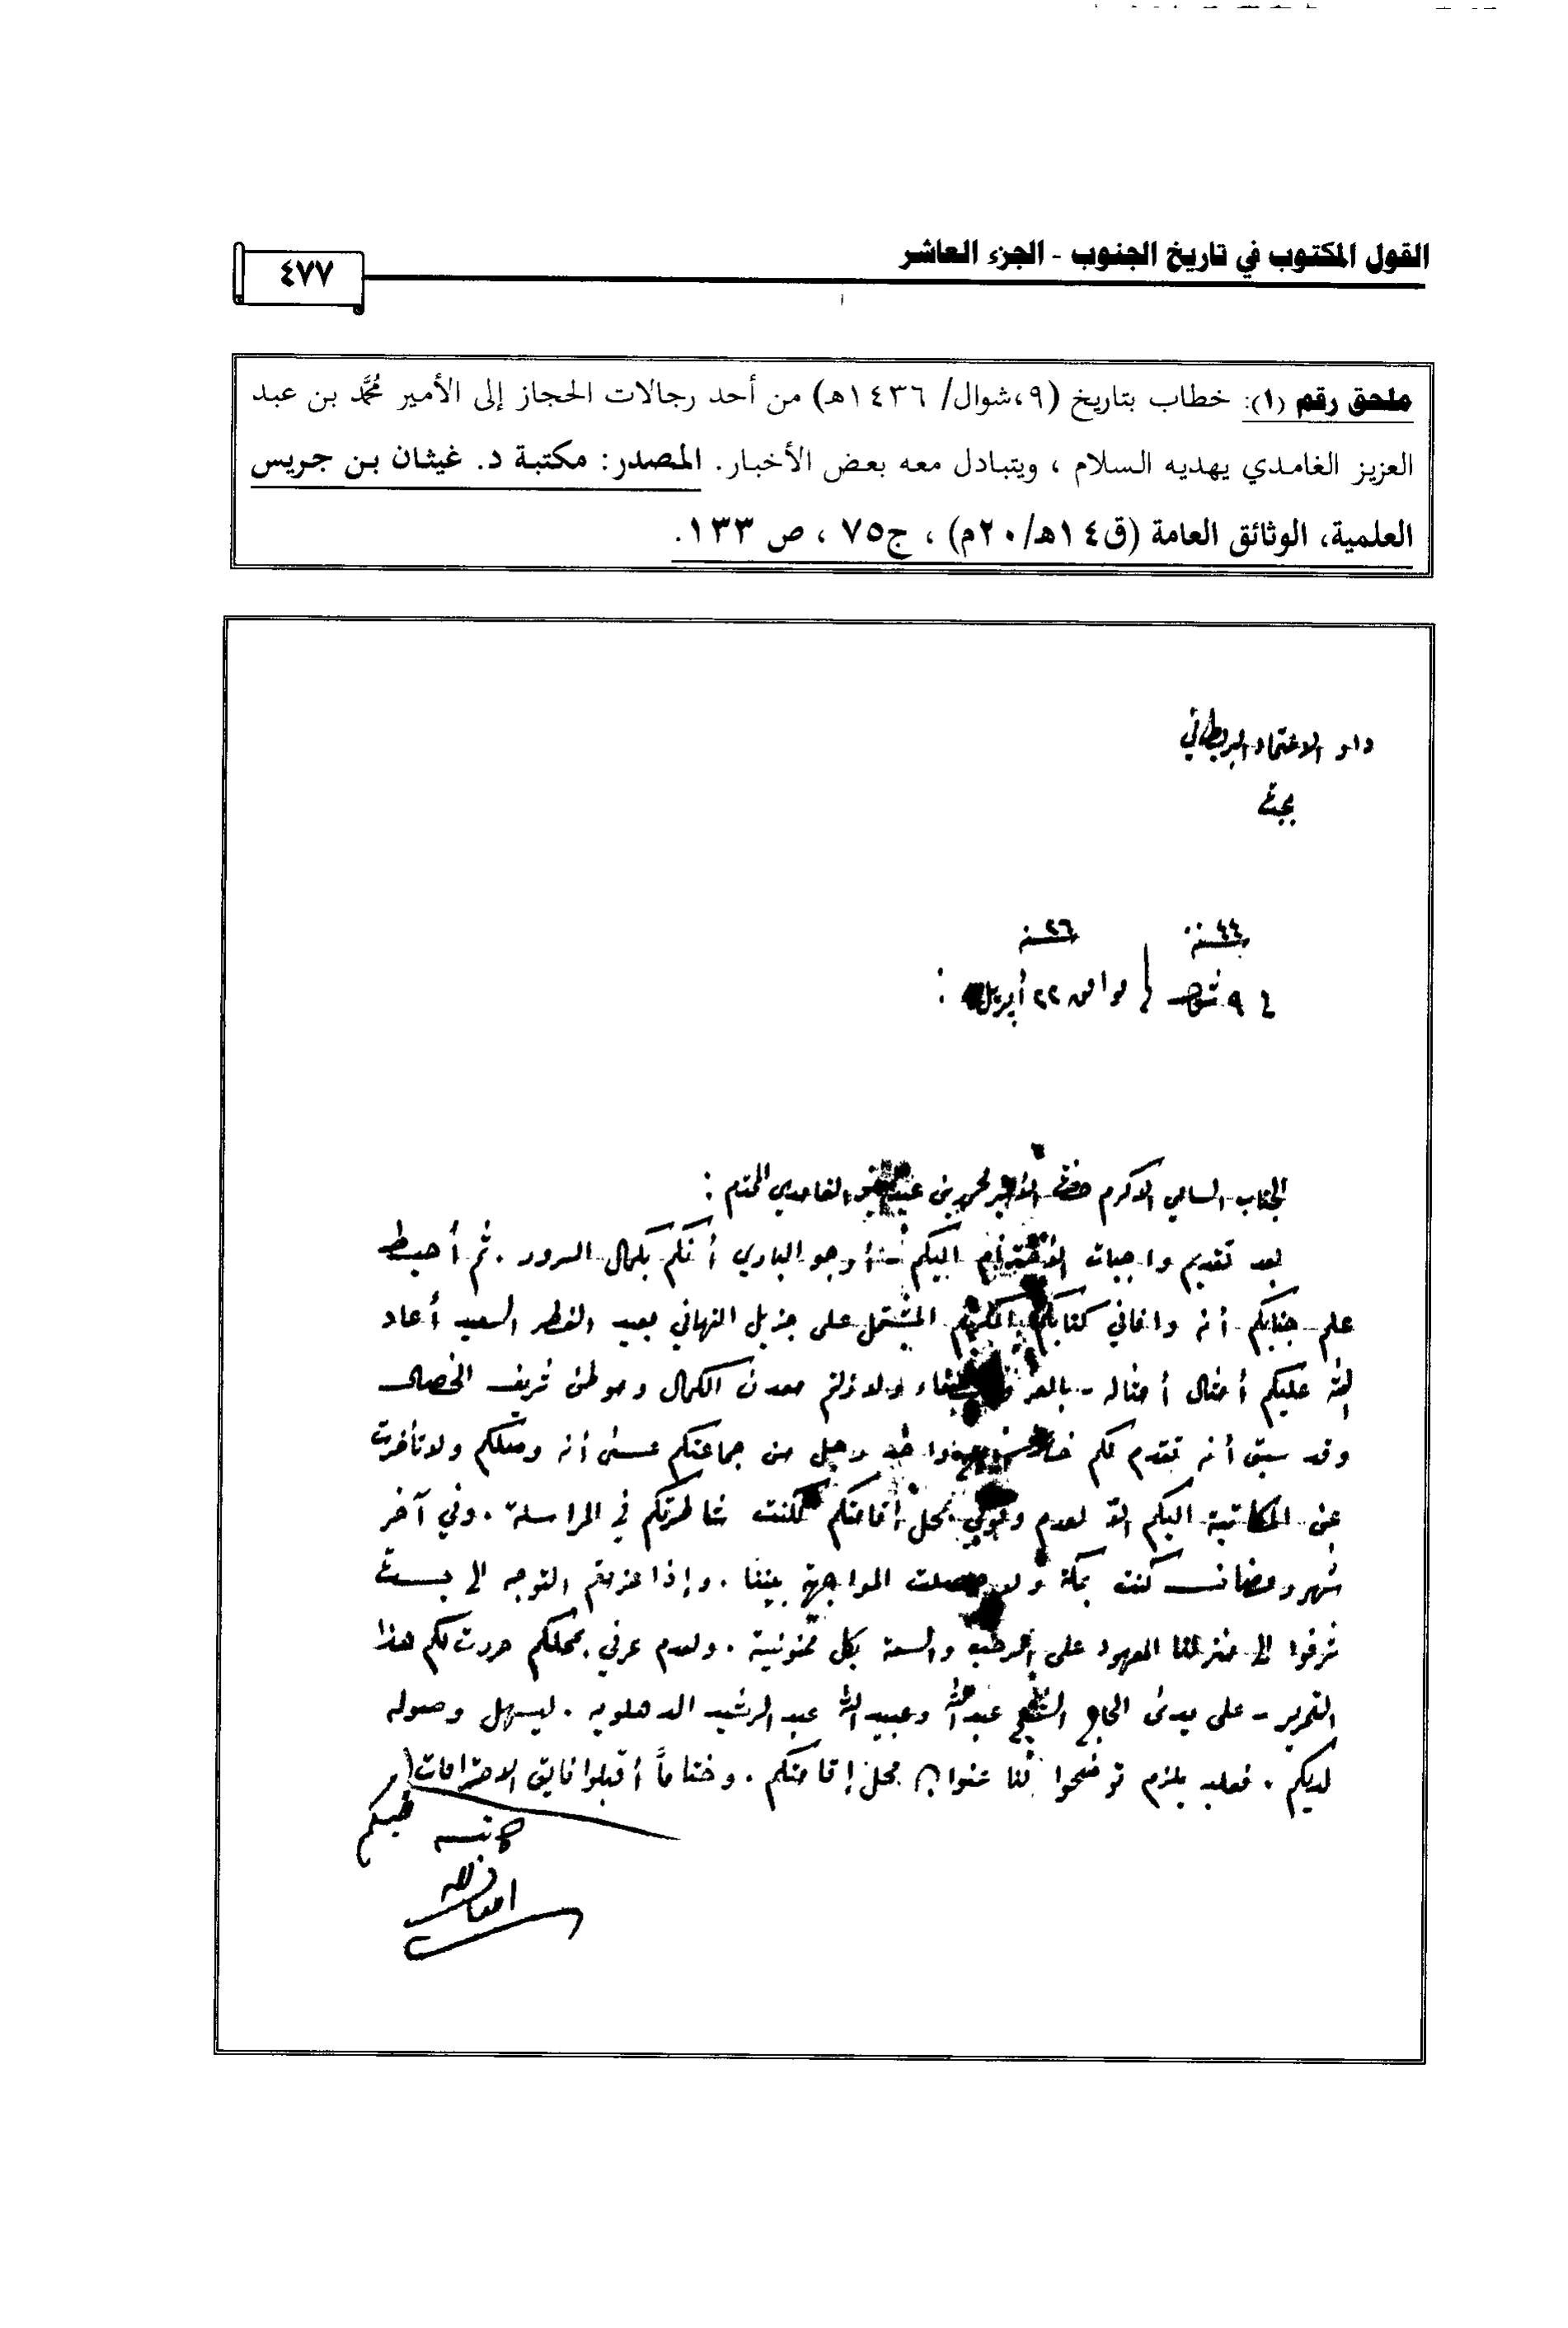 القول المكتوب في تاريخ الجنوب - الجزء العاشر
٤٧٧
ملحق رقم (١): خطاب بتاريخ (٩،شوال/ ١٤٣٦هـ) من أحد رجالات الحجاز إلى الأمير مُحَمَّد بن عبد
العزيز الغامدي يهديه السلام ، ويتبادل معه بعض الأخبار. المصدر: مكتبة د. غيثان بن جريس
العلمية، الوثائق العامة (ق١٤هـ/٢٠م) ، ج٧٥ ، ص ١٣٣.
دار الاعتماد البريطاني
بجدة
سنة ٤٤ سنة ٢٦
٩ شوال / موافق ٢٢ أبريل :
الجناب السامي الاكرم حضرة الأمير محمد بن عبد الغامدي المحترم :
بعد تقديم واجبات الاحترام اليكم أرجو الباري أنكم بكمال السرور . ثم أحيط
علم جنابكم أنه وافاني كتابكم الكريم المشتمل على جزيل التهاني بعيد الفطر السعيد أعاد
الله عليكم أمثال أمثاله - بالعز ولازلتم معدن الكمال وموطن شريف الخصال
وقد سبق أنه تقدم لكم رجل من جماعتكم عسى أنه وصلكم ولا تأخرت
عن المكاتبة اليكم الا لعدم بمحل أقامتكم لكنت شاطرتكم في المراسلة . وفي آخر
شهر رمضان كنت بمكة حصلت المواجهة بيننا . وإذا عزمتم التوجه الى جدة
شرفوا الى منزلنا المعهود على الرحب والسعة بكل ممنونية . ولعدم عرفي بمحلكم حررت لكم هذا
التحرير - على يدى الحاج الشيخ عبدالله وعبيد الله عبد الرشيد الدهلويه . ليسهل وصوله
لديكم . فعليه يلزم توضحوا لنا عنوان محل إقامتكم . وختاماً أقبلوا فايق الاحترامات
محبكم